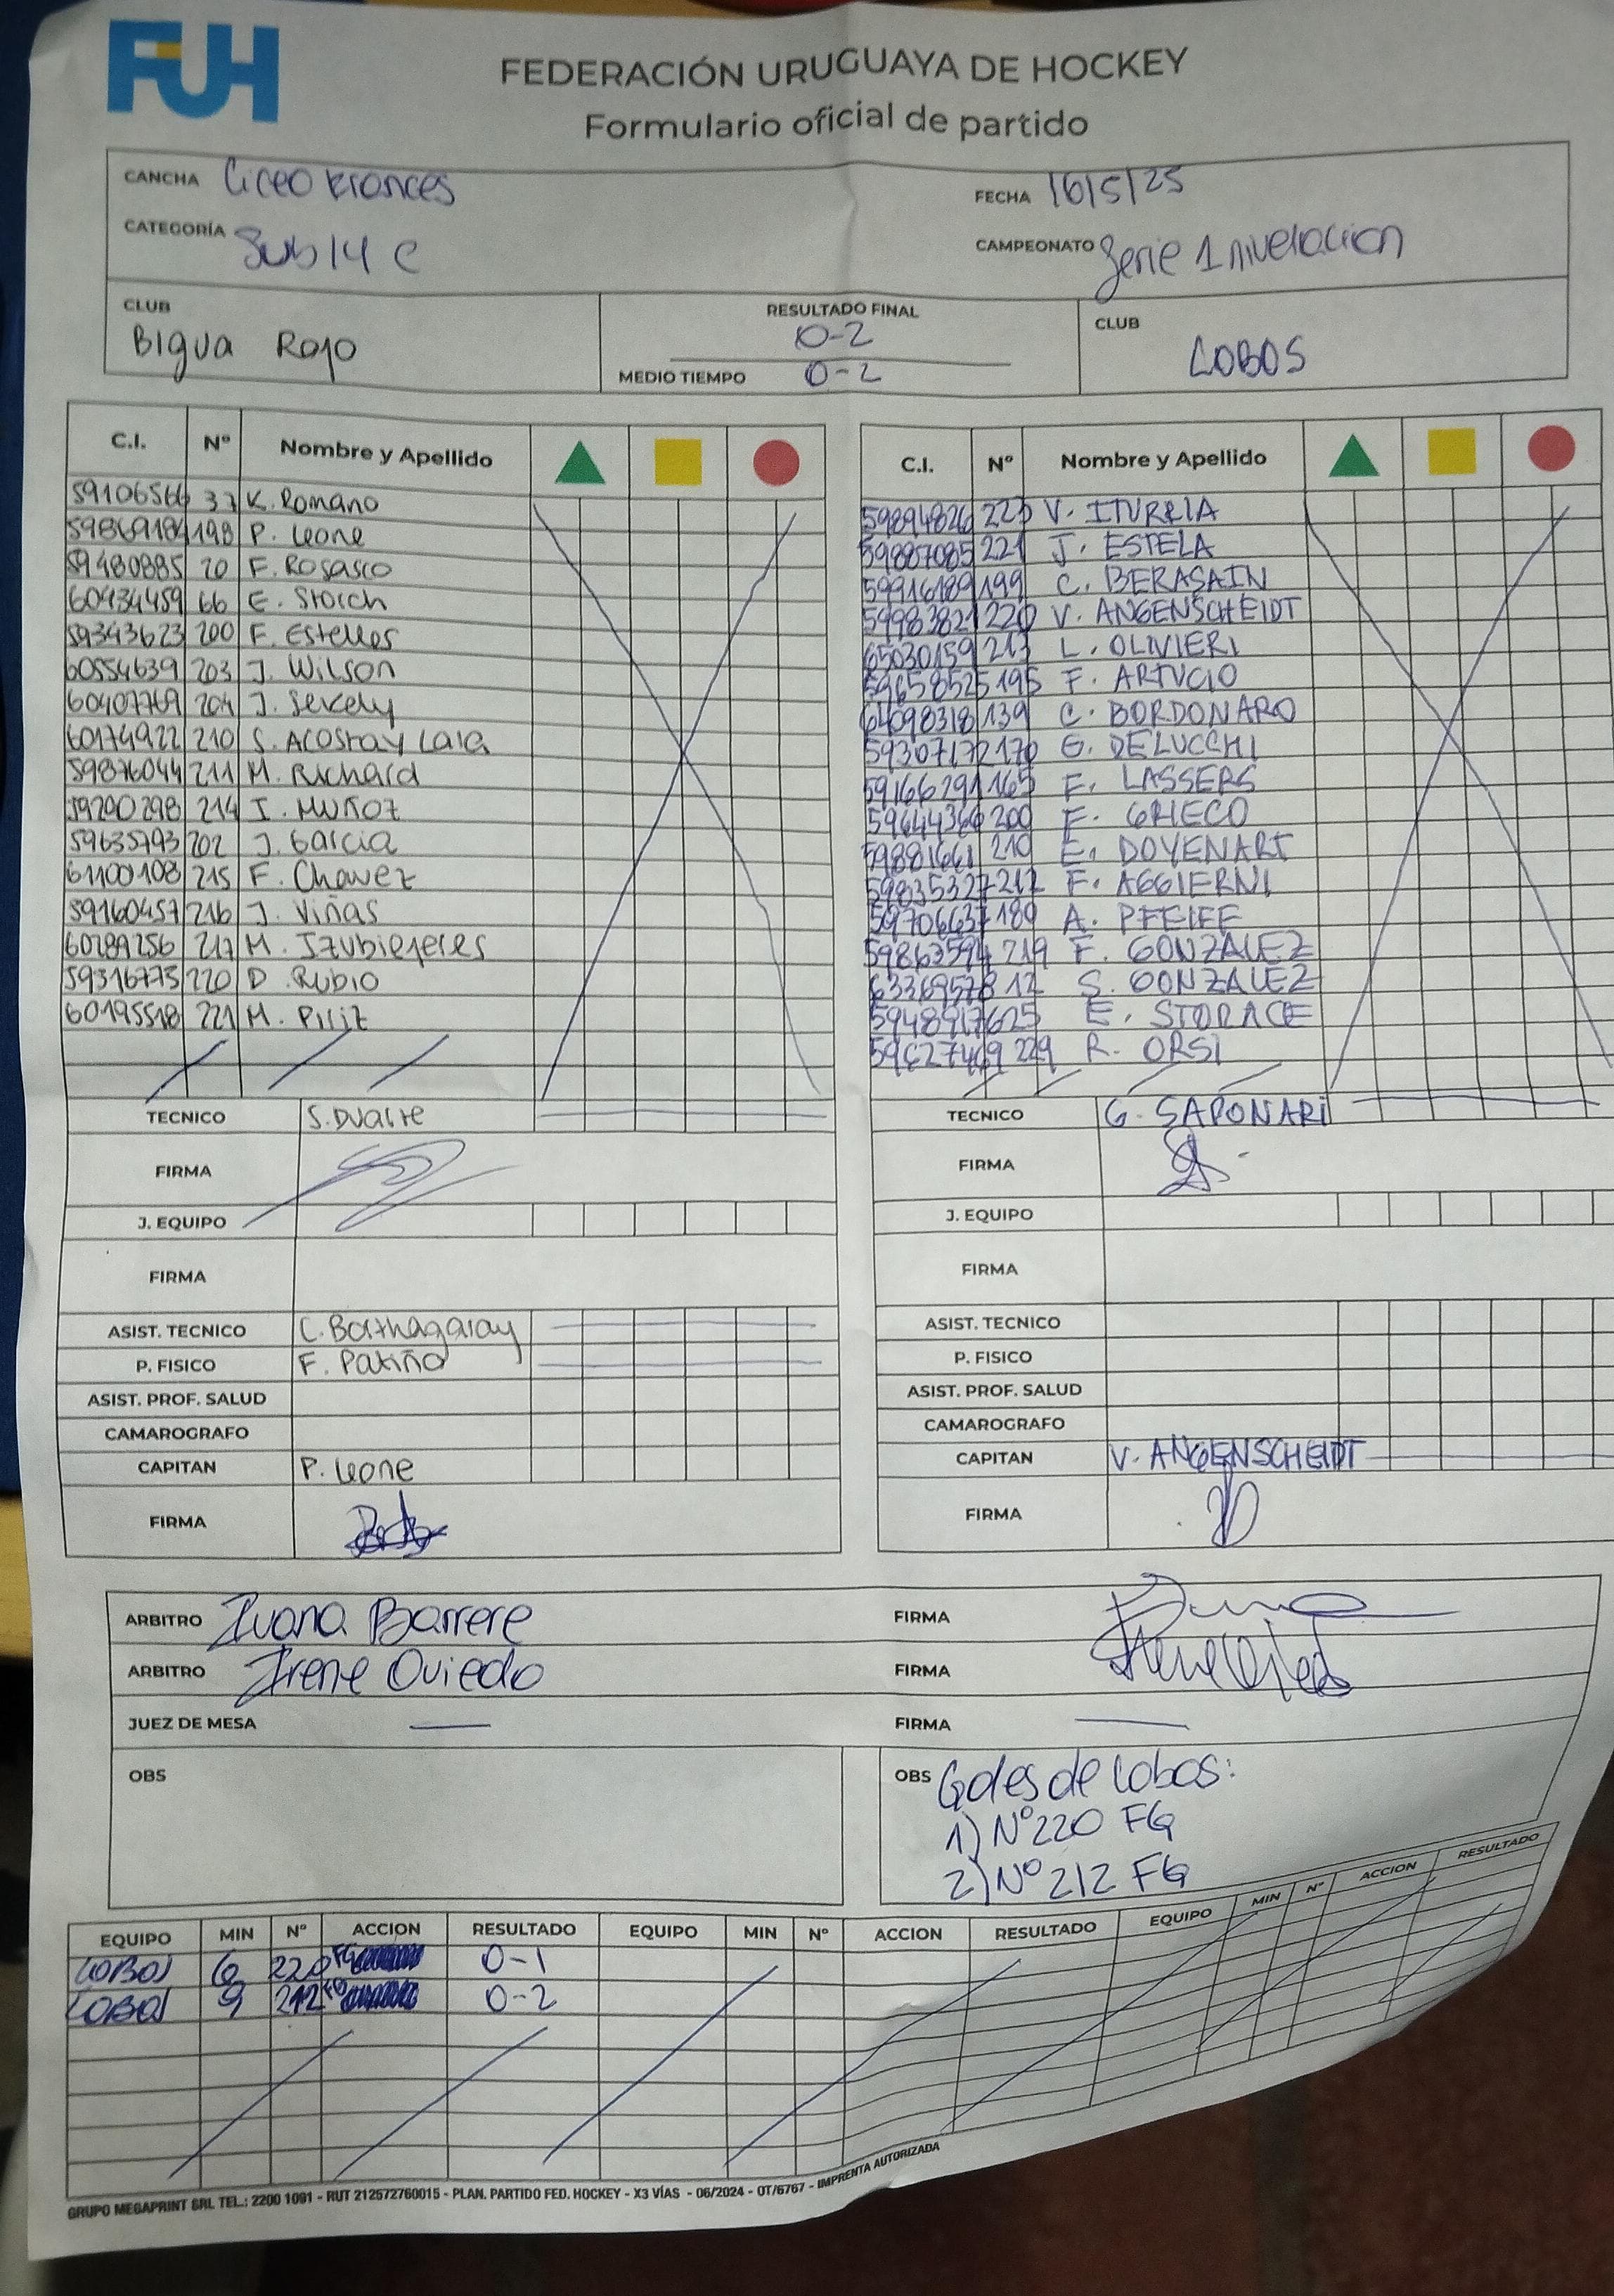 FUH
FEDERACIÓN URUGUAYA DE HOCKEY
Formulario oficial de partido
CANCHA Liceo Frances
FECHA 16/5/25
CATEGORÍA Sub 14 C
CAMPEONATO Serie 1 nivelacion
CLUB Bigua Rojo
RESULTADO FINAL 0-2
MEDIO TIEMPO 0-2
CLUB LOBOS
C.I. Nº Nombre y Apellido
59106566 37 K. Romano
59869184 198 P. Leone
59480885 20 F. Rosasco
60434459 66 E. Storch
59343623 200 F. Estelles
60554639 203 J. Wilson
60407769 204 J. Sekely
60174922 210 S. Acosta y Lara
59876044 211 M. Richard
59200298 214 I. Muñoz
59635793 202 J. Garcia
61100108 215 F. Chavez
59160457 216 J. Viñas
60289256 217 M.
59316775 220 D. Rubio
60195518 221 M. Piriz
TECNICO S. Duarte
FIRMA
J. EQUIPO
FIRMA
ASIST. TECNICO C. Borthagaray
P. FISICO F. Patiño
ASIST. PROF. SALUD
CAMAROGRAFO
CAPITAN P. Leone
FIRMA
C.I. Nº Nombre y Apellido
59894826 223 V. ITURRIA
59887085 221 J. ESTELA
59916189 199 C. BERASAIN
59983821 220 V. ANGENSCHEIDT
65030159 213 L. OLIVIERI
59658525 195 F. ARTUCIO
64098318 139 C. BORDONARO
59307172 170 G. DELUCCHI
59166291 165 F. LASSERS
59644366 200 F. GRIECO
59881661 210 E. DOYENART
59835327 212 F. AGGIERNI
59706637 189 A. PFEIFF
59863594 219 F. GONZALEZ
63369578 12 S. GONZALEZ
59489176 25 E. STORACE
59627469 229 R. ORSI
TECNICO G. SAPONARI
FIRMA
J. EQUIPO
FIRMA
ASIST. TECNICO
P. FISICO
ASIST. PROF. SALUD
CAMAROGRAFO
CAPITAN V. ANGENSCHEIDT
FIRMA
ARBITRO Ivana Barrere FIRMA
ARBITRO Irene Oviedo FIRMA Irene Oviedo
JUEZ DE MESA — FIRMA —
OBS
OBS Goles de Lobos:
1) Nº220 FG
2) Nº212 FG
EQUIPO MIN Nº ACCION RESULTADO EQUIPO MIN Nº ACCION RESULTADO EQUIPO MIN Nº ACCION RESULTADO
LOBOS 6 220 FG 0-1
LOBOS 9 212 FG 0-2
GRUPO MEGAPRINT SRL TEL.: 2200 1091 - RUT 212572760015 - PLAN. PARTIDO FED. HOCKEY - X3 VÍAS - 06/2024 - OT/6767 - IMPRENTA AUTORIZADA